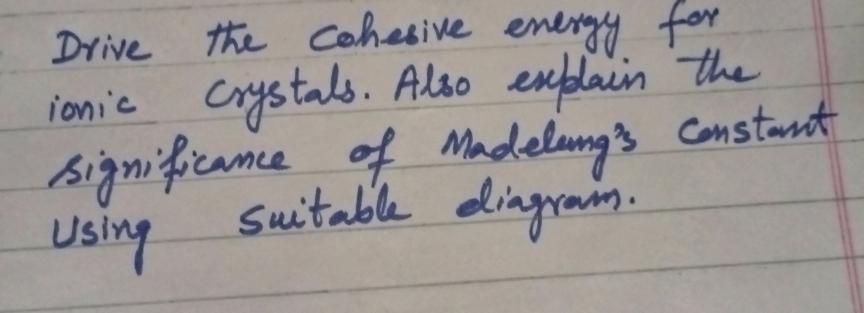 Drive the Cohesive energy for
ionic Crystals. Also explain the
significance of Madelung's Constant
Using Suitable diagram.